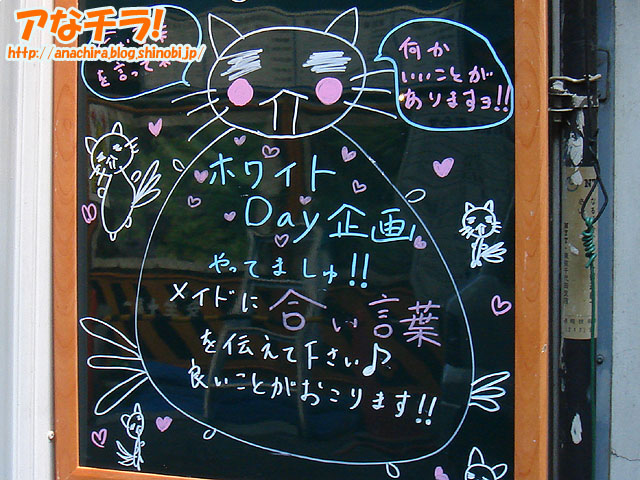 アなチラ!
http://anachira.blog.shinobi.jp/
を言って
何か
いいことが
ありますヨ!!
ホワイト
Day企画
やってましゅ!!
メイドに合い言葉
を伝えて下さい♪
良いことがおこります!!